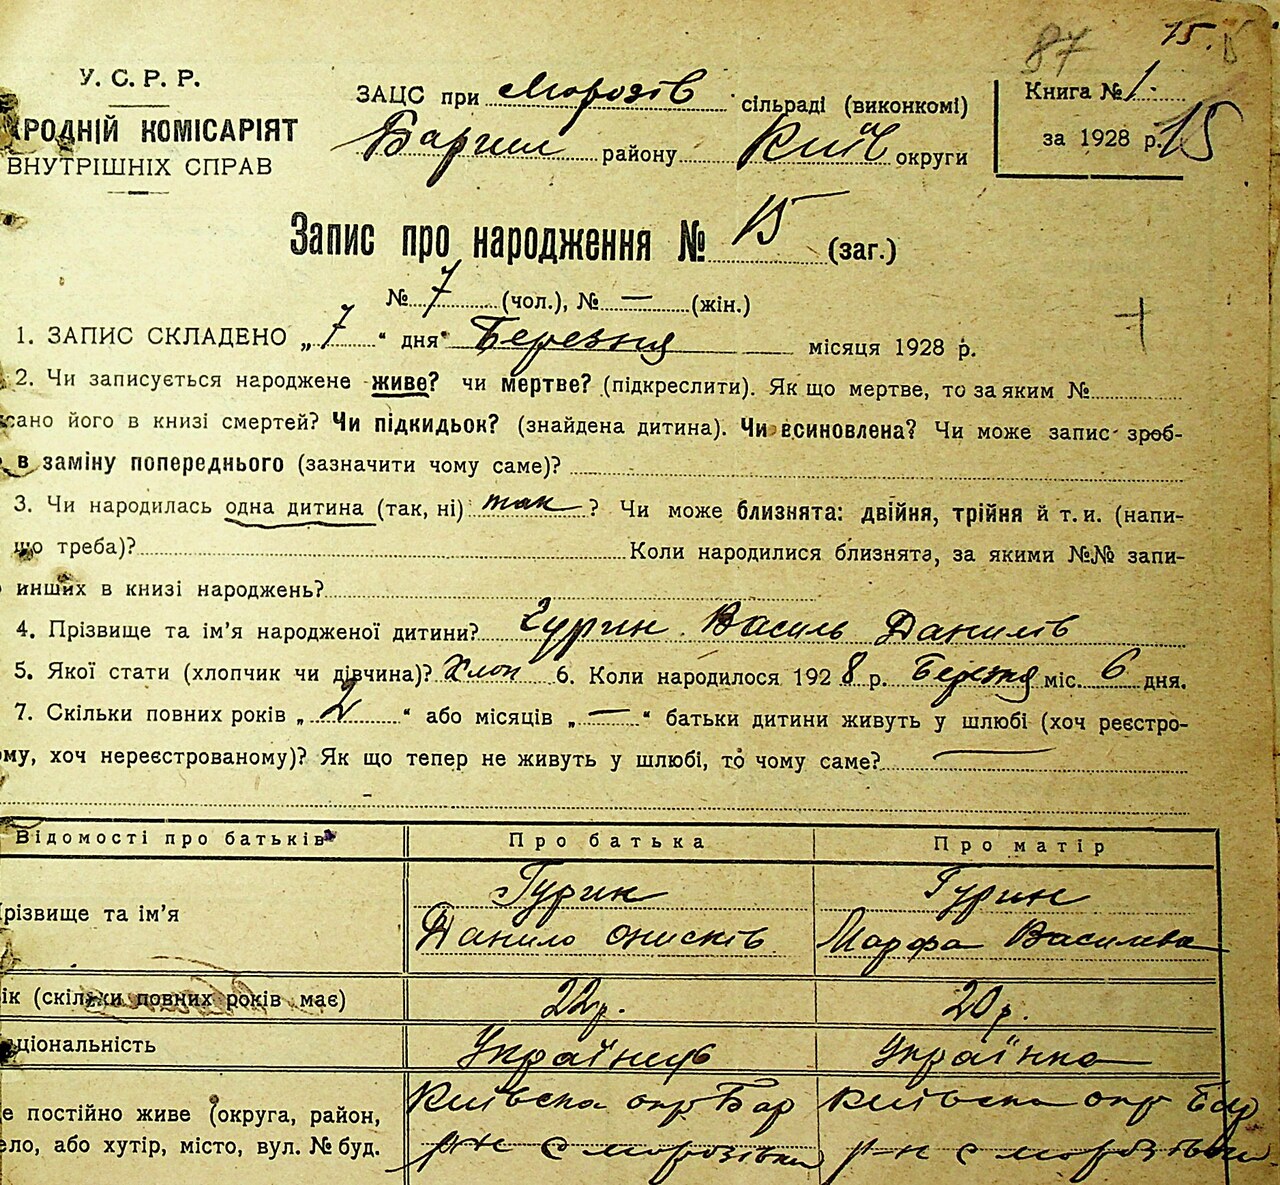 87
15.
У. С. Р. Р.
АРОДНІЙ КОМІСАРІЯТ
ВНУТРІШНІХ СПРАВ
ЗАЦС при Морозів сільраді (виконкомі)
Баришп району Київ округи
Книга № 1.
за 1928 р. 15
Запис про народження № 15 (заг.)
№ 7 (чол.), № — (жін.)
1. ЗАПИС СКЛАДЕНО „ 7 “ дня Березня місяця 1928 р.
2. Чи записується народжене живе? чи мертве? (підкреслити). Як що мертве, то за яким №
сано його в книзі смертей? Чи підкидьок? (знайдена дитина). Чи всиновлена? Чи може запис зроб-
в заміну попереднього (зазначити чому саме)?
3. Чи народилась одна дитина (так, ні) так ? Чи може близнята: двійня, трійня й т. и. (напи-
що треба)? Коли народилися близнята, за якими №№ запи-
инших в книзі народжень?
4. Прізвище та ім’я народженої дитини? Гурин Василь Данилів
5. Якої стати (хлопчик чи дівчина)? Хлоп 6. Коли народилося 1928 р. Березня міс. 6 дня.
7. Скільки повних років „ 2 “ або місяців „ — “ батьки дитини живуть у шлюбі (хоч реєстро-
ому, хоч нереєстрованому)? Як що тепер не живуть у шлюбі, то чому саме? —
Відомості про батьків Про батька Про матір
різвище та ім’я Гурин Данило Онисків Гурин Марфа Василева
ік (скільки повних років має) 22 р. 20 р.
аціональність Українець Українка
е постійно живе (округа, район, Київська окр Бар Київська окр Бар
ело, або хутір, місто, вул. № буд. р-н с Морозівка р-н с Морозівка